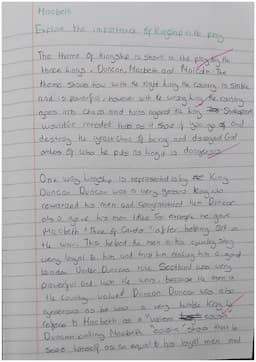 Macbeth
Explore the importance of kingship in the play
The theme of kingship is shown in the play by the
three kings, Duncan, Macbeth and Malcolm. The
theme shows how with the right king the country is stable
and is powerful, however with the wrong king the country
goes into chaos and turns against the king. Shakespeare
wouldn't
destroy the great chain of being and disregard God
orders of who he puts as king it is dangerous
One way kingship is represented is by King
Duncan. Duncan was a very generous king who
rewarded his men and
of a
Macbeth "Thane of Cawdor" after helping out in
the war. This helped the men in his country stay
very loyal to him and trust him making him a good
leader. Under Duncans rule Scotland was very
powerful and won the wars, because the men in
the country valued Duncan. Duncan was also
generous as he was a very humble king he
refers to Macbeth as a "valiant cousin"
Duncan calling Macbeth "cousin" shows that he
sees himself as an equal to his loyal men and